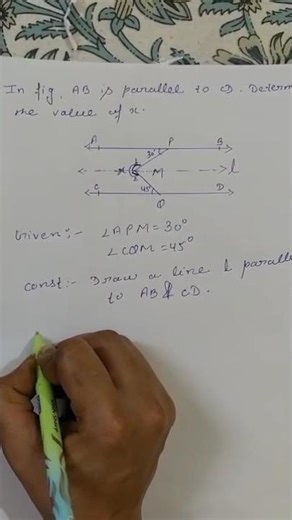 In fig, AB is parallel to CD. Determ
the value of x.
A P B
30°
x M l
C 45° D
Q
Given:- ∠APM = 30°
∠CQM = 45°
Const:- Draw a line l parallel
to AB & CD.